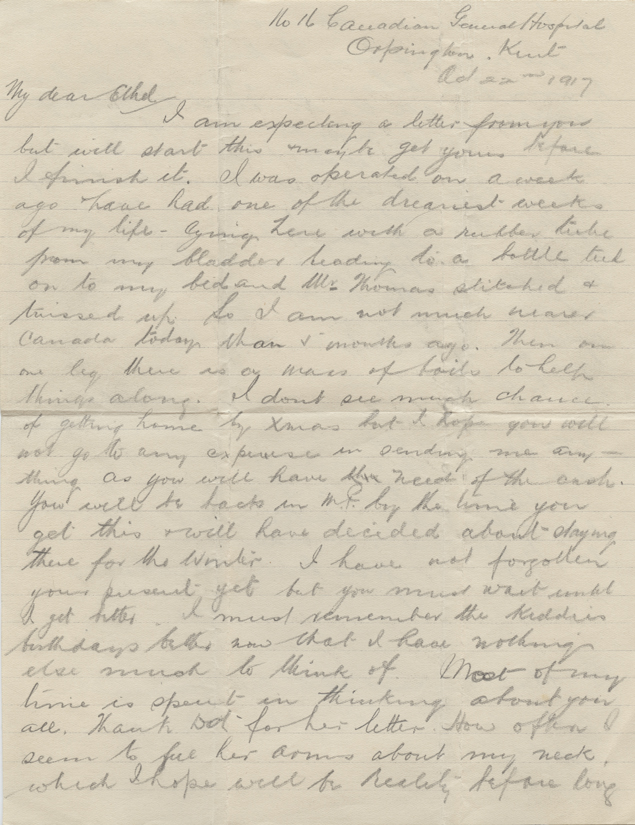 No 16 Canadian General Hospital
Orpington. Kent
Oct 22nd 1917
My dear Ethel
I am expecting a letter from you
but will start this & maybe get yours before
I finish it. I was operated on a week
ago & have had one of the dreariest weeks
of my life - lying here with a rubber tube
from my bladder leading to a bottle tied
on to my bed and Mr Thomas stitched &
trussed up. So I am not much nearer
Canada today than 5 months ago. Then on
one leg there is a mass of boils to help
things along. I dont see much chance.
of getting home by Xmas but I hope you will
not go to any expense in sending me any-
thing as you will have need of the cash.
You will be back in by the time you
get this & will have decided about staying
there for the Winter. I have not forgotten
your present yet but you must wait until
I get better. I must remember the kiddies
birthdays better now that I have nothing
else much to think of. Most of my
time is spent in thinking about you
all. Thank Dot for her letter. How often I
seem to feel her arms about my neck,
which I hope will be reality before long